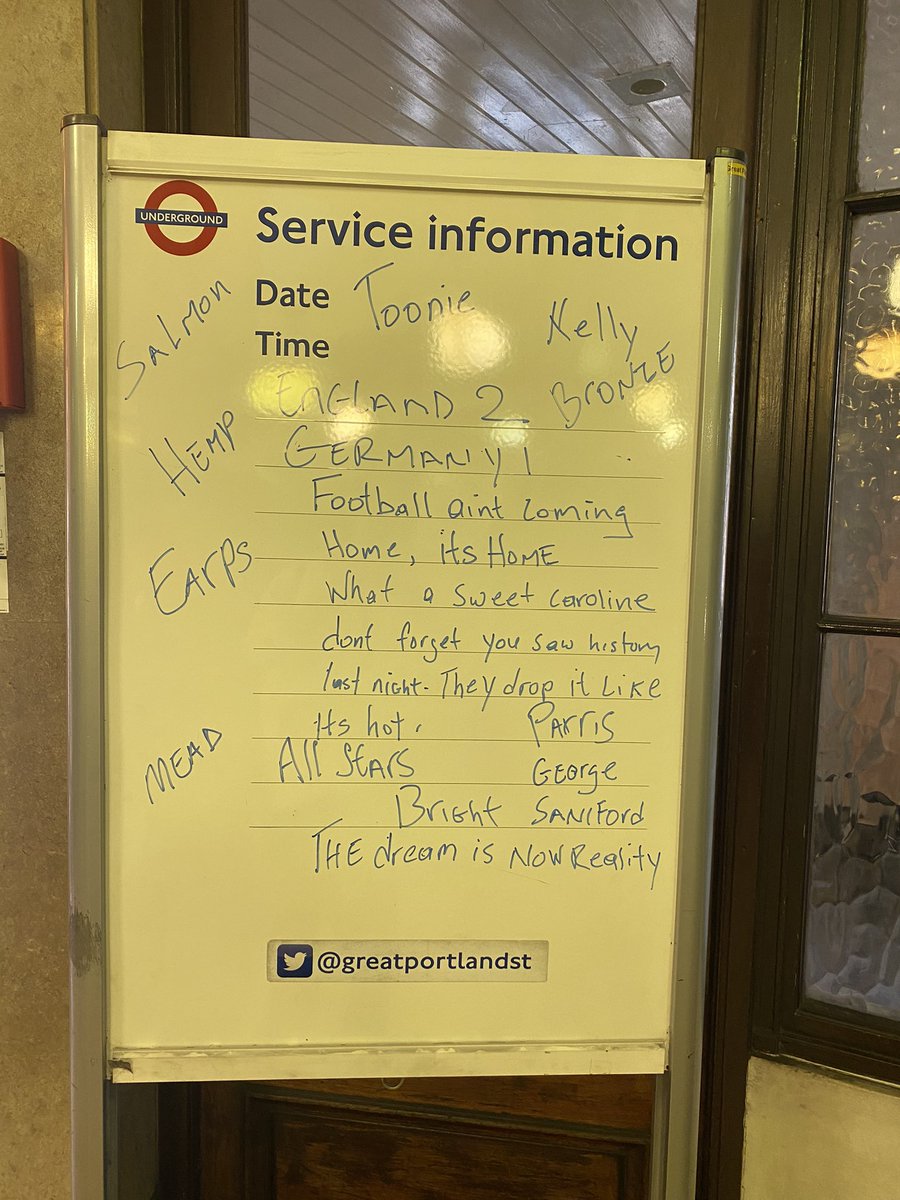 UNDERGROUND
Service information
Date Toonie
Time
Kelly
Salmon
ENGLAND 2 BRONZE
HEMP
GERMANY 1
Football aint coming
Home, its HOME
EARPS
What a sweet caroline
dont forget you saw history
last night. They drop it Like
Its hot. PARRIS
MEAD
All STARS GEORGE
Bright SANIFORD
THE dream is NOW Reality
@greatportlandst